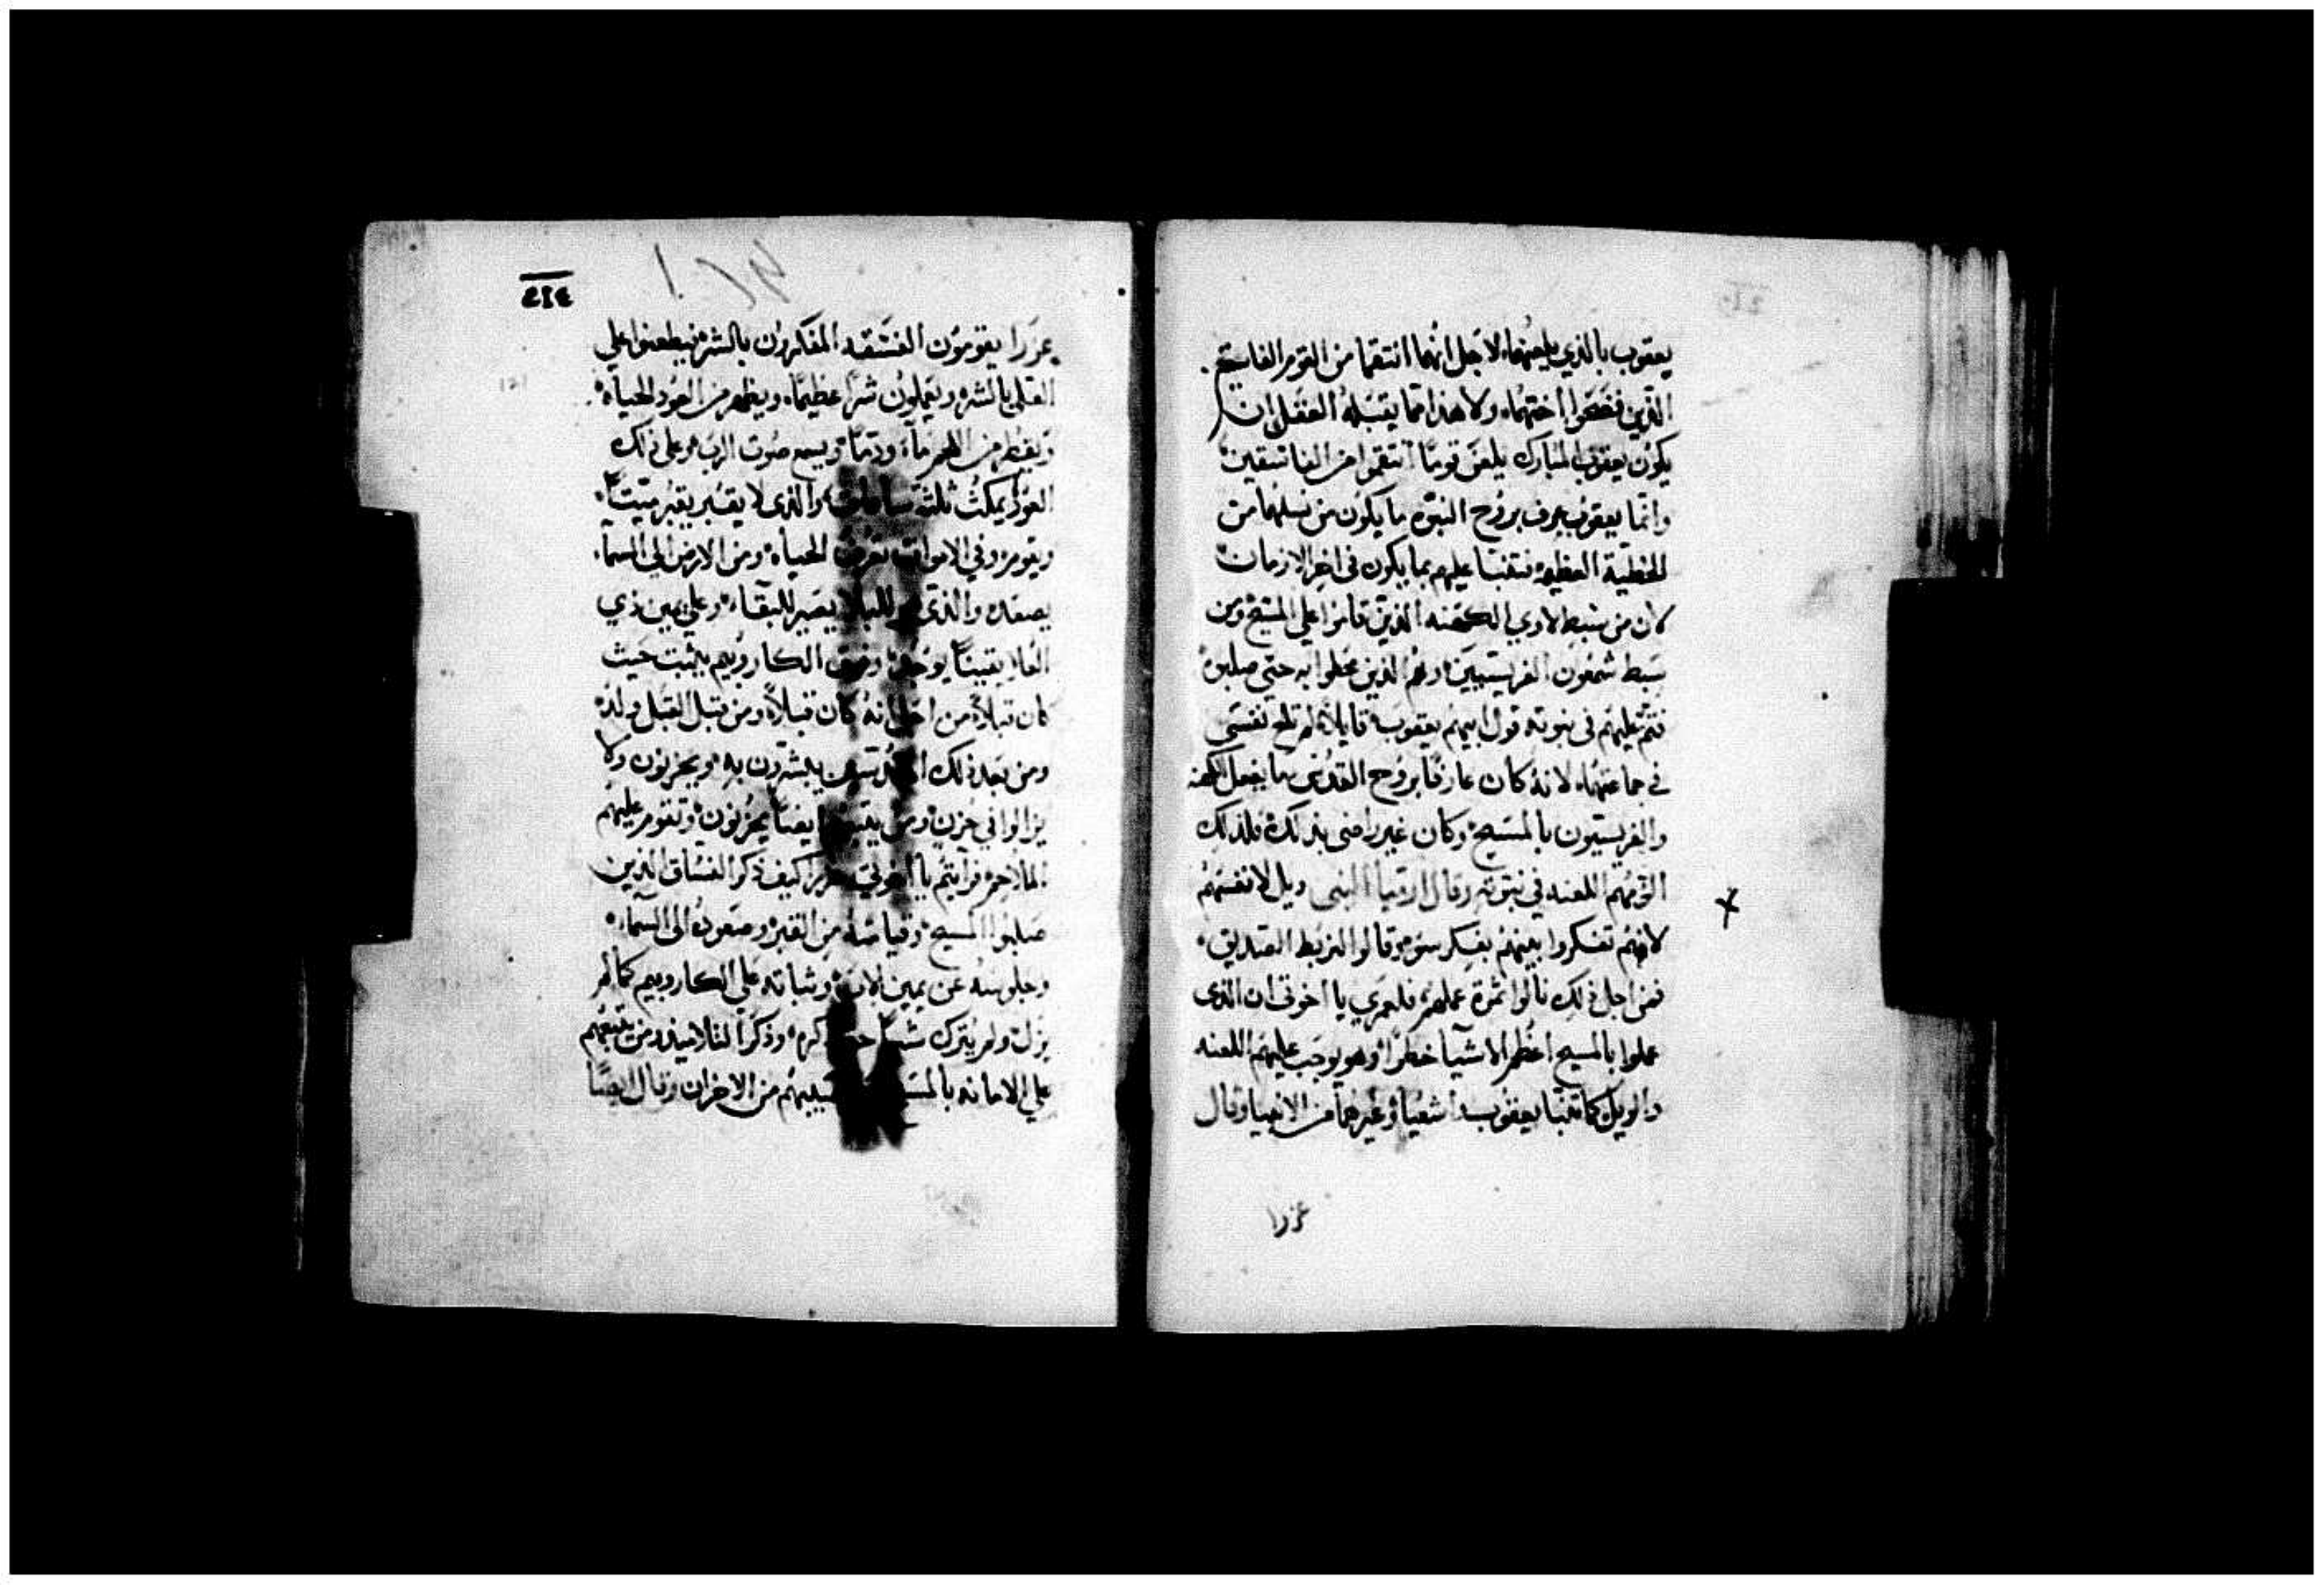 يعقوب بالذي يلعنهما لاجل انهما انتقما من القوم الفاسقين
الذين فضحوا اختهما ولا هذا مما يقبله العقل ان
يكون يعقوب المبارك يلعن قوما انتقموا من الفاسقين
وانما يعقوب عرف بروح النبوه ما يكون من نسلهما من
الخطية العظيمه فتنبا عليهم بما يكون في اخر الازمان
لان من سبط لاوي الكهنه الذين قاموا علي المسيح ومن
سبط شمعون الفريسيين وهم الذين عملوا به حتي صلبوه
فتم عليهم في نبوته قول ابيهم يعقوب قايلا لم تلج نفسي
في جماعتهما لانه كان عارفا بروح القدس ما يفعل الكهنه
والفريسيون بالمسيح وكان غير راضى بذلك فلذلك
الزمهم اللعنه في نبوته وقال ارميا النبي ويل لانفسهم
لانهم تفكروا بينهم بفكر سوء وقالوا لنربط الصديق
فمن اجل ذلك نالوا ثمرة عملهم فلعمري يا اخوتي ان الذي
عملوا بالمسيح اعظم الاشيا خطرا وهو يوجب عليهم اللعنه
والويل كما تنبا يعقوب اشعيا وغيرهما من الانبيا وقال
عزرا
٢١٤
عزرا يقومون الفسقه المفكرون بالشر
القلب بالشر ويعملون شرا عظيما ويظهر من العود الحياه
ويقطر من اللحم ماء ودما ويسمع صوت الرب وعلى ذلك
العود يمكث ثلثة ساعات والذى لا يقبر يقبر ميتا
ويقوم وفي الاموات الحياه ومن الارض الي السماء
يصعد والذي للبلا يصير للبقاء وعلي يمين ذي
العلا يقينا يوجد وفوق الكاروبيم يثبت حيث
كان قبلا من اجل انه كان قبلا ومن قبل القبل ولد
ومن بعد ذلك يبشرون به ويحزنون ولا
يزالوا في حزن ومن ايضا يحزنون وتقوم عليهم
الملاحم فرايتم يا اخوتي عزرا كيف ذكر الفساق الذين
صلبوا المسيح وقيامته من القبر وصعوده الى السماء
وجلوسه عن يمين الاب وثباته علي الكاروبيم كما لم
يزل ولم يترك شيا ذكره وذكر التلاميذ ومن يتبعهم
علي الامانه من الاحزان وقال ايضا